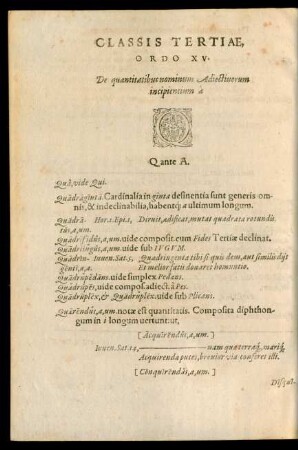 CLASSIS TERTIAE,
ORDO XV.
De quantitatibus nominum Adiectiuorum
incipientium à
Q
Q ante A.
Quà, vide Qui.
Quadrāgintā. Cardinalia in ginta desinentia sunt generis omnis,
& indeclinabilia, habentq́; a vltimum longum.
Quadra- Hor.1.Epi.1, Diruit, ædificat, mutat quadrata rotundis
tus, a, um.
Quadrifidus, a, um. vide composit. cum Fides Tertiæ declinat.
Quadriiugus, a, um. vide sub IVGVM.
Quadrin- Iuuen. Sat.5, Quadringenta tibi si quis deus, aut similis dijs
genti, æ, a. Et melior fati donaret homuntio.
Quadrupedans. vide simplex Pedans.
Quadrupes, vide compos. adiect. à Pes.
Quadruplex, & Quàdruplex. vide sub Plicans.
Quærendus, a, um. notæ est quantitatis. Composita diphthon-
gum in i longum uertuntur,
[Acquirendus, a, um.]
Iuuen. Sat.14, nam quæ terraq́;, mariq́;
Acquirenda putes, breuiter via conferet isti.
[Conquirendus, a, um.]